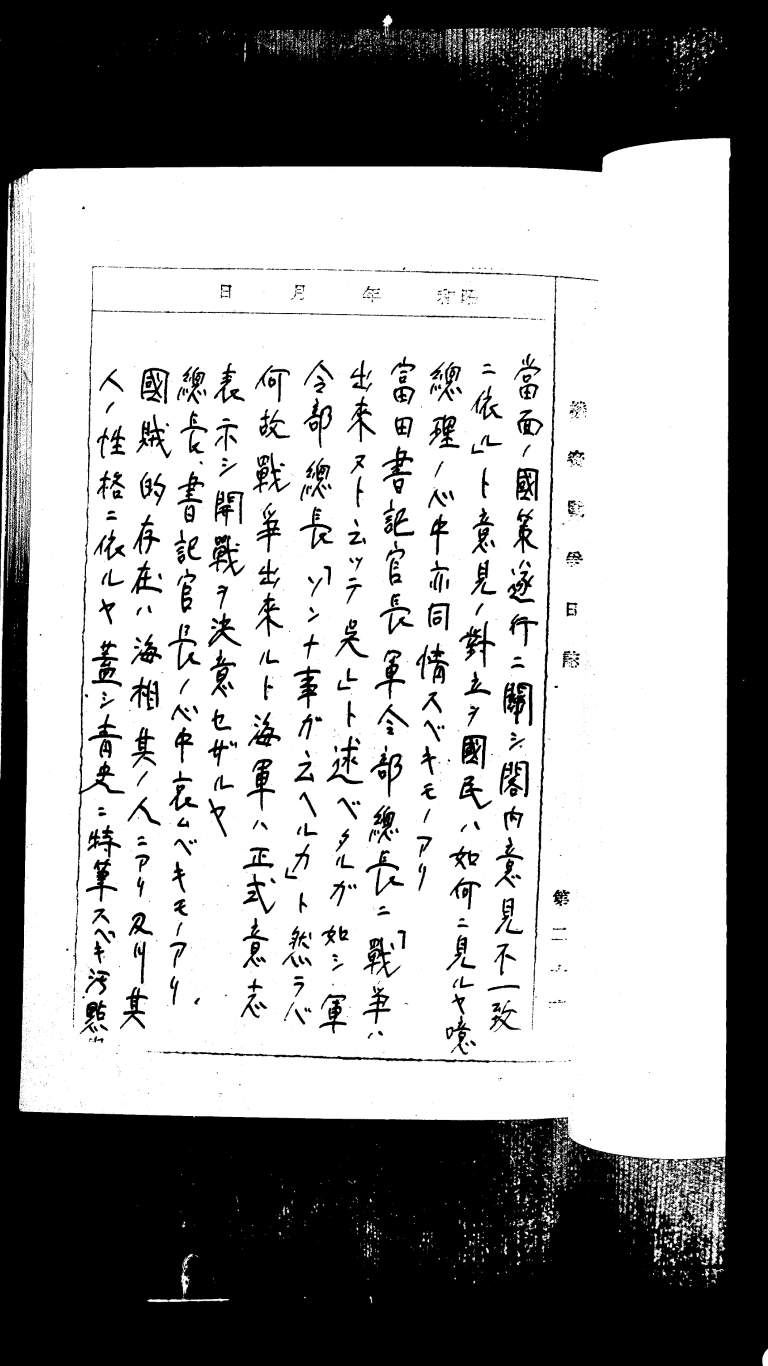 昭和 年 月 日
當面ノ國策遂行ニ關シ閣内意見不一致
ニ依ル」ト意見ノ對立ヲ國民ハ如何ニ見ルヤ噫
總理ノ心中亦同情スベキモノアリ
富田書記官長軍令部總長ニ「戰争ハ
出來ヌト云ッテ呉レ」ト述ベタルガ如シ軍
令部總長「ソンナ事ガ云ヘルカ」ト然ラバ
何故戰爭出來ルト海軍ハ正式意志
表示シ開戰ヲ決意セザルヤ
總長、書記官長ノ心中哀ムベキモノアリ、
國賊的存在ハ海相其ノ人ニアリ及川其
人ノ性格ニ依ルヤ蓋シ青史ニ特筆スベキ汚點
日誌
第二